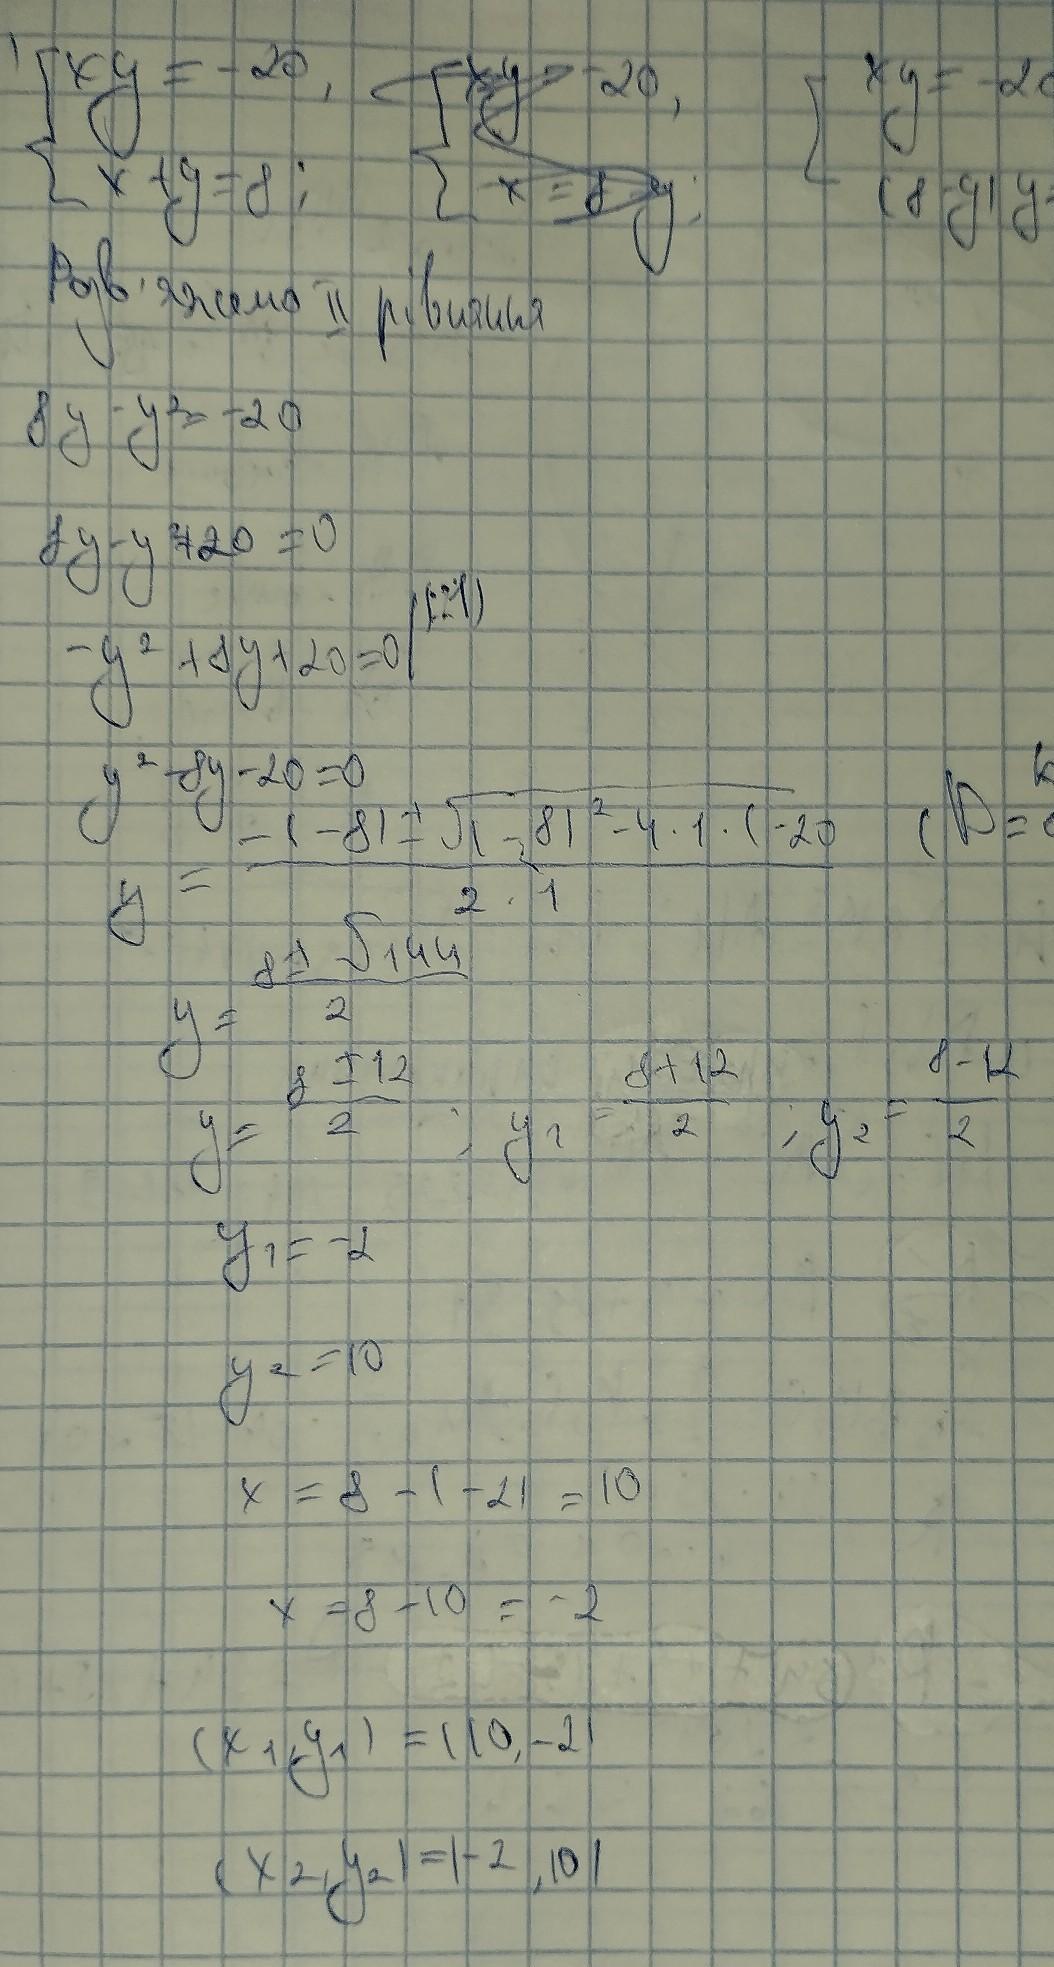 {xy = -20, {xy = -20, {xy = -20
{x + y = 8; {x = 8 - y; (8 - y) y =
Розв'яжемо II рівняння
8y - y² = -20
8y - y² + 20 = 0
-y² + 8y + 20 = 0 |:(-1)
y² - 8y - 20 = 0
y = (-(-8) ± √(-8)² - 4 · 1 · (-20) / (2 · 1) (D =
y = (8 ± √144) / 2
y = (8 ± 12) / 2 ; y₁ = (8 + 12) / 2 ; y₂ = (8 - 12) / 2
y₁ = -2
y₂ = 10
x = 8 - (-2) = 10
x = 8 - 10 = -2
(x₁, y₁) = (10, -2)
(x₂, y₂) = (-2, 10)